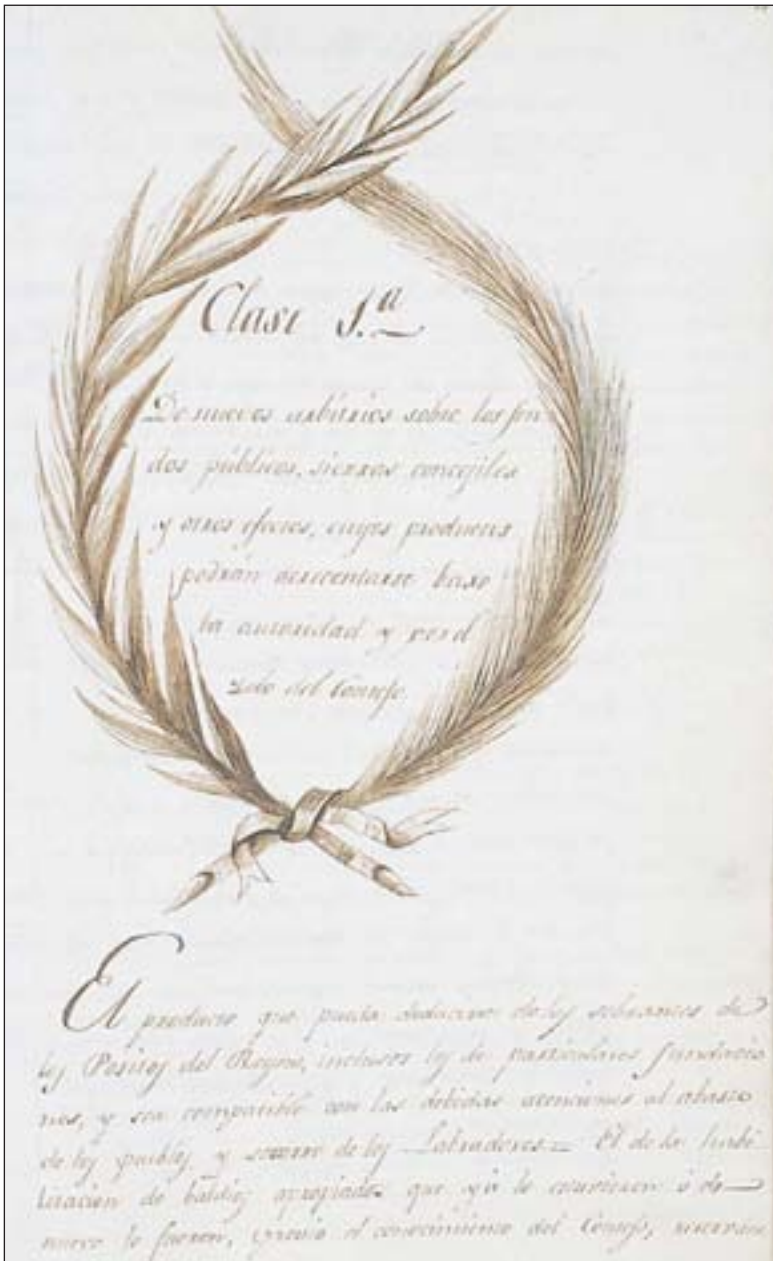 Clase 1.a
De nuevos arbitrios sobre los fon
dos públicos, tierras concejiles
y otros efectos, cuyos productos
podrán acrecentarse baxo
la autoridad y
del Consejo
El producto que pueda deducirse de los sobrantes de
los Positos del Reyno, inclusos los de particulares fundacio
nes, y sea compatible con las debidas atenciones al abasto
de los pueblos y socorro de los Labradores = El de la
de baldíos que ya lo estuvieren ó de
nuevo lo fueren, previo el conocimiento del Consejo,